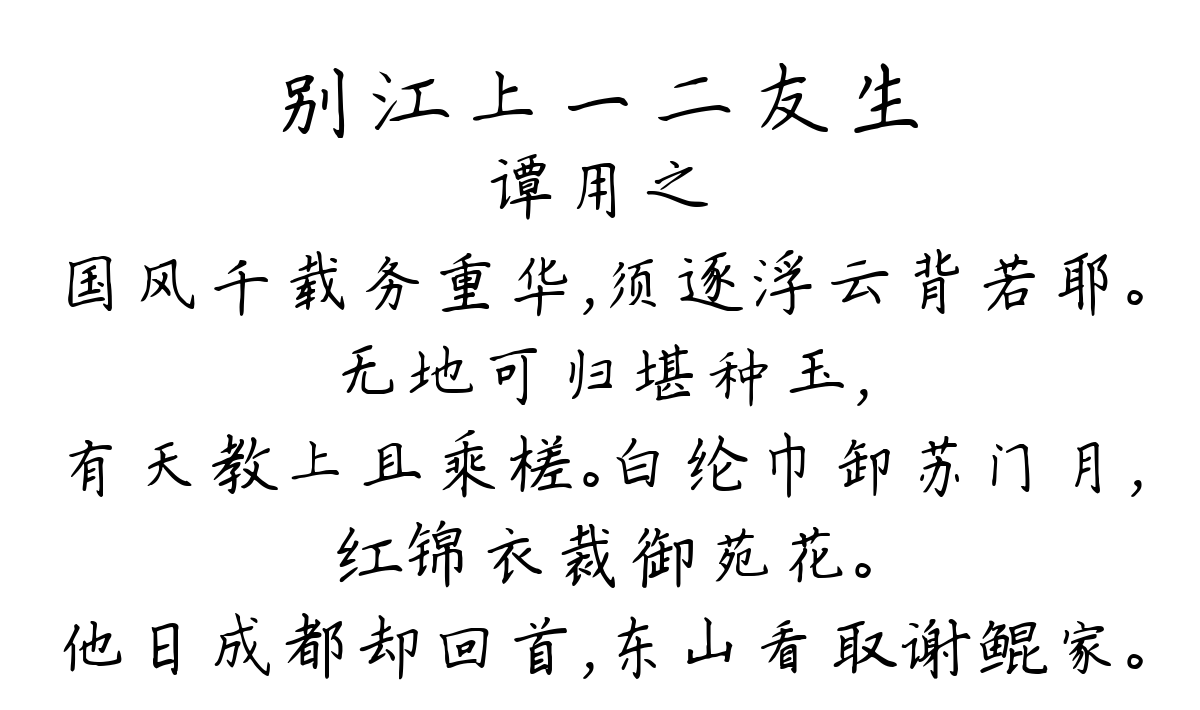 别江上一二友生
谭用之
国风千载务重华,须逐浮云背若耶。
无地可归堪种玉,
有天教上且乘槎。白纶巾卸苏门月,
红锦衣裁御苑花。
他日成都却回首,东山看取谢鲲家。